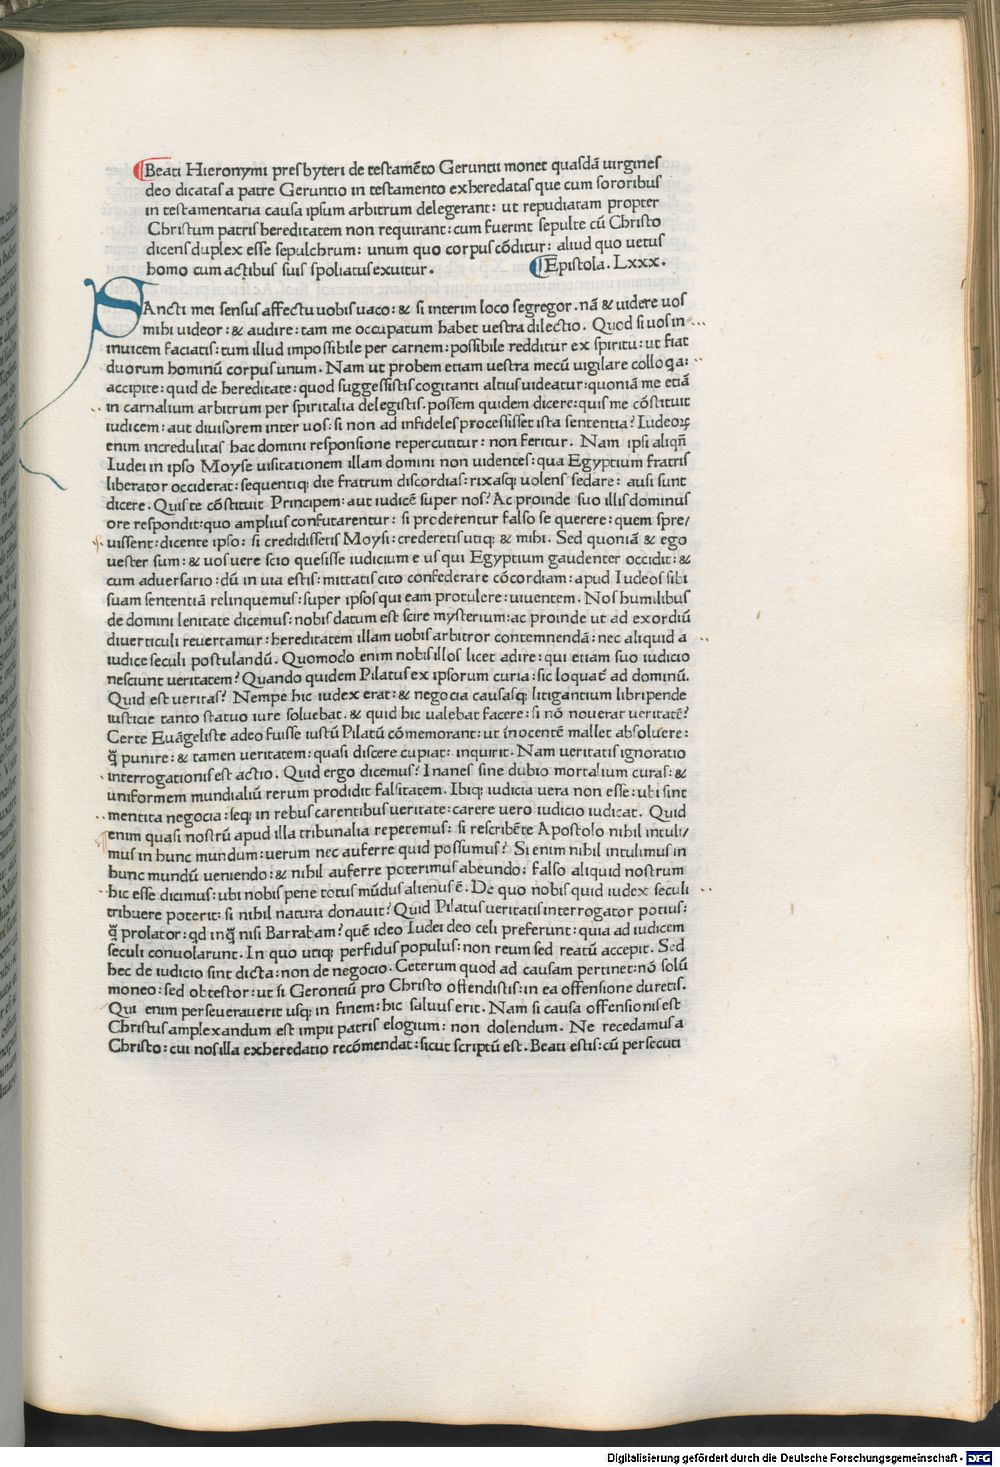 Beati Hieronymi presbyteri de testamēto Geruntii monet quasdā uirgines
deo dicatas a patre Geruntio in testamento exheredatas que cum sororibus
in testamentaria causa ipsum arbitrum delegerant: ut repudiatam propter
Christum patris hereditatem non requirant: cum fuerint sepulte cū Christo
dicens duplex esse sepulchrum: unum quo corpus cōditur: aliud quo uetus
homo cum actibus suis spoliatus exuitur. Epistola. Lxxx.
SAncti mei sensus affectu uobis uaco: & si interim loco segregor. nā & uidere uos
mihi uideor: & audire: tam me occupatum habet uestra dilectio. Quod si uos in
inuicem faciatis: tum illud impossibile per carnem: possibile redditur ex spiritu: ut fiat
duorum hominū corpus unum. Nam ut probem etiam uestra mecū uigilare colloqa:
accipite: quid de hereditate: quod suggessistis cogitanti altius uideatur: quoniā me etiā
in carnalium arbitrum per spiritalia delegistis. possem quidem dicere: quis me cōstituit
iudicem: aut diuisorem inter uos: si non ad infideles processisset ista sententia? Iudeoꝝ
enim incredulitas hac domini responsione repercutitur: non feritur. Nam ipsi aliqñ
Iudei in ipso Moyse uisitationem illam domini non uidentes: qua Egyptium fratris
liberator occiderat: sequentiq; die fratrum discordias: rixasq; uolens sedare: ausi sunt
dicere. Quis te cōstituit Principem: aut iudicē super nos? Ac proinde suo illis dominus
ore respondit: quo amplius confutarentur: si proderentur falso se querere: quem spre/
uissent: dicente ipso: si credidissetis Moysi: crederetis utiq; & mihi. Sed quoniā & ego
uester sum: & uos uere scio quesisse iudicium e us qui Egyptium gaudenter occidit: &
cum aduersario: dū in uia estis: mittatis cito confederare cōcordiam: apud Iudeos sibi
suam sententiā relinquemus: super ipsos qui eam protulere: uiuentem. Nos humilibus
de domini lenitate dicemus: nobis datum est scire mysterium: ac proinde ut ad exordiū
diuerticuli reuertamur: hereditatem illam uobis arbitror contemnendā: nec aliquid a
iudice seculi postulandū. Quomodo enim nobis illos licet adire: qui etiam suo iudicio
nesciunt ueritatem? Quando quidem Pilatus ex ipsorum curia: sic loquat᷑ ad dominū.
Quid est ueritas? Nempe hic iudex erat: & negocia causasq; litigantium libripende
iusticie tanto statuo iure soluebat. & quid hic ualebat facere: si nō nouerat ueritatē?
Certe Euāgeliste adeo fuisse iustū Pilatū cōmemorant: ut inocentē mallet absoluere:
q̄̄ punire: & tamen ueritatem: quasi discere cupiat: inquirit. Nam ueritatis ignoratio
interrogationis est actio. Quid ergo dicemus? Inanes sine dubio mortalium curas: &
uniformem mundialiū rerum prodidit falsitatem. Ibiq; iudicia uera non esse: ubi sint
mentita negocia: seq; in rebus carentibus ueritate: carere uero iudicio iudicat. Quid
enim quasi nostrū apud illa tribunalia reperemus: si rescribēte Apostolo nihil intuli/
mus in hunc mundum: uerum nec auferre quid possumus? Si enim nihil intulimus in
hunc mundū ueniendo: & nihil auferre poterimus abeundo: falso aliquid nostrum
hic esse dicimus: ubi nobis pene totus mūdus alienus ē. De quo nobis quid iudex seculi
tribuere poterit: si nihil natura donauit? Quid Pilatus ueritatis interrogator potius:
q̄̄ prolator: qd inq̄̄ nisi Barrabam? quē ideo Iudei deo celi preferunt: quia ad iudicem
seculi conuolarunt. In quo utiq; perfidus populus: non reum sed reatū accepit. Sed
hec de iudicio sint dicta: non de negocio. Ceterum quod ad causam pertinet: nō solū
moneo: sed obtestor: ut si Gerontiū pro Christo offendistis: in ea offensione duretis.
Qui enim perseuerauerit usq; in finem: hic saluus erit. Nam si causa offensionis est
Christus amplexandum est impii patris elogium: non dolendum. Ne recedamus a
Christo: cui nos illa exheredatio recōmendat: sicut scriptū est. Beati estis: cū persecuti
Digitalisierung gefördert durch die Deutsche Forschungsgemeinschaft - DFG